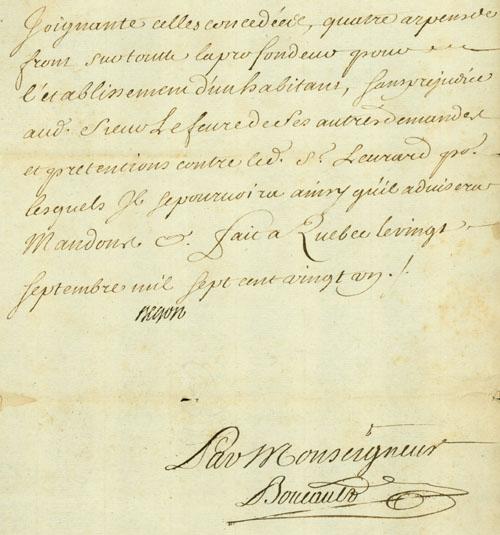 Joignante celles concedéés, quatre arpens de
front sur toutte la profondeur pour
l'etablissement d'un habitant, sans prejudice
aud. Sieur Lefeure de ses autres demandes
et pretentions contre led. Sr. Leurard por.
lesquels Jl se pourvoira ainsy qu'il advisera
Mandons &c. fait a Quebec le vingt
septembre mil sept cent vingt un ./.
Begon
Par Monseigneur
Boucault